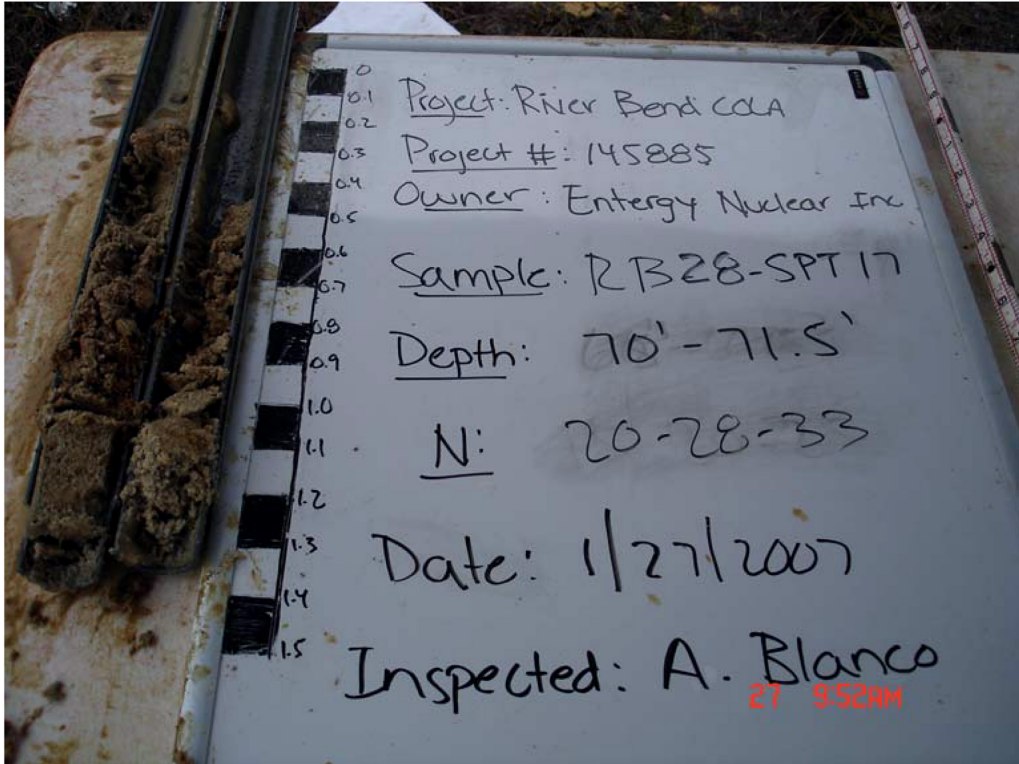 0
0.1
0.2
0.3
0.4
0.5
0.6
0.7
0.8
0.9
1.0
1.1
1.2
1.3
1.4
1.5
Project: River Bend COLA
Project #: 145885
Owner: Entergy Nuclear Inc
Sample: RB28-SPT17
Depth: 70'-71.5'
N: 20-28-33
Date: 1/27/2007
Inspected: A. Blanco
27 9:52AM